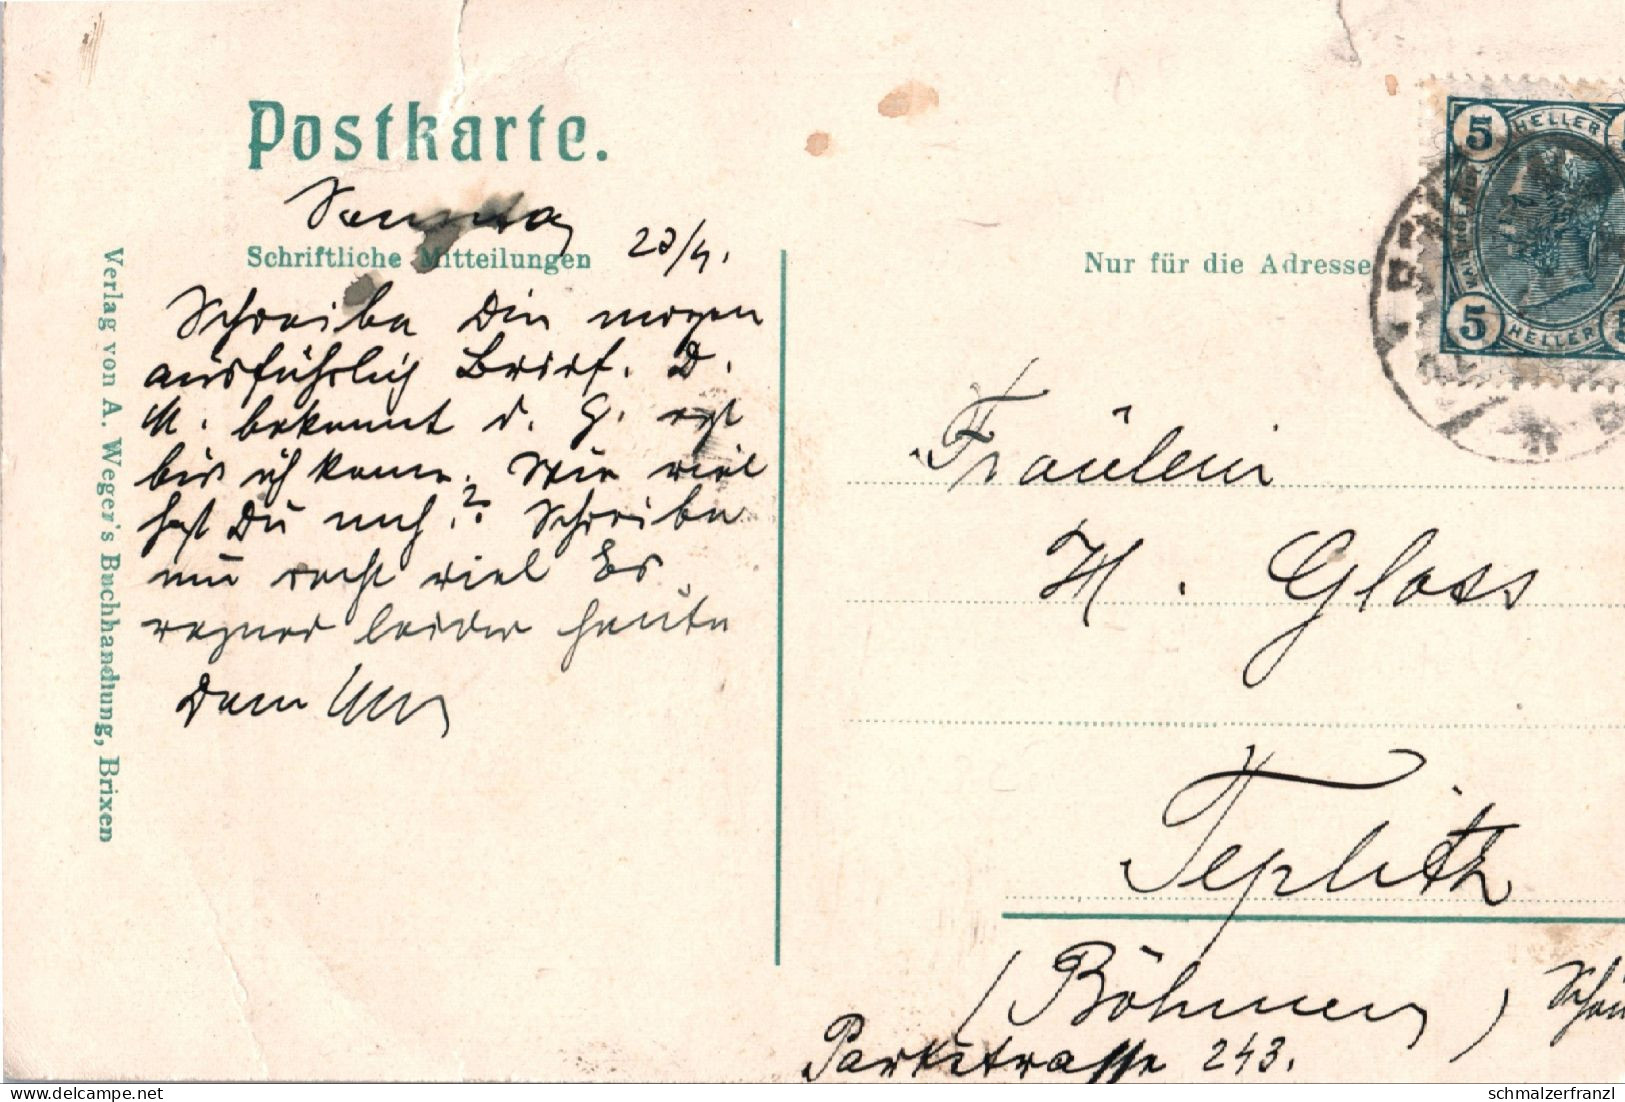 Postkarte.
Sonntag 23/4.
Schriftliche Mitteilungen
Schreibe Dir morgen
ausführlich Brief. D.
M. bekommt d. G. erst
bis ich komme. Wie viel
hast Du noch? Schreibe
mir recht viel Es
regnet leider heute
Dein
Verlag von A. Weger's Buchhandlung, Brixen
Nur für die Adresse
5 HELLER
5 HELLER 5
Fräulein
H. Glass
Teplitz
(Böhmen) Schön
Parkstrasse 243.
delcampe.net
schmalzerfranzl